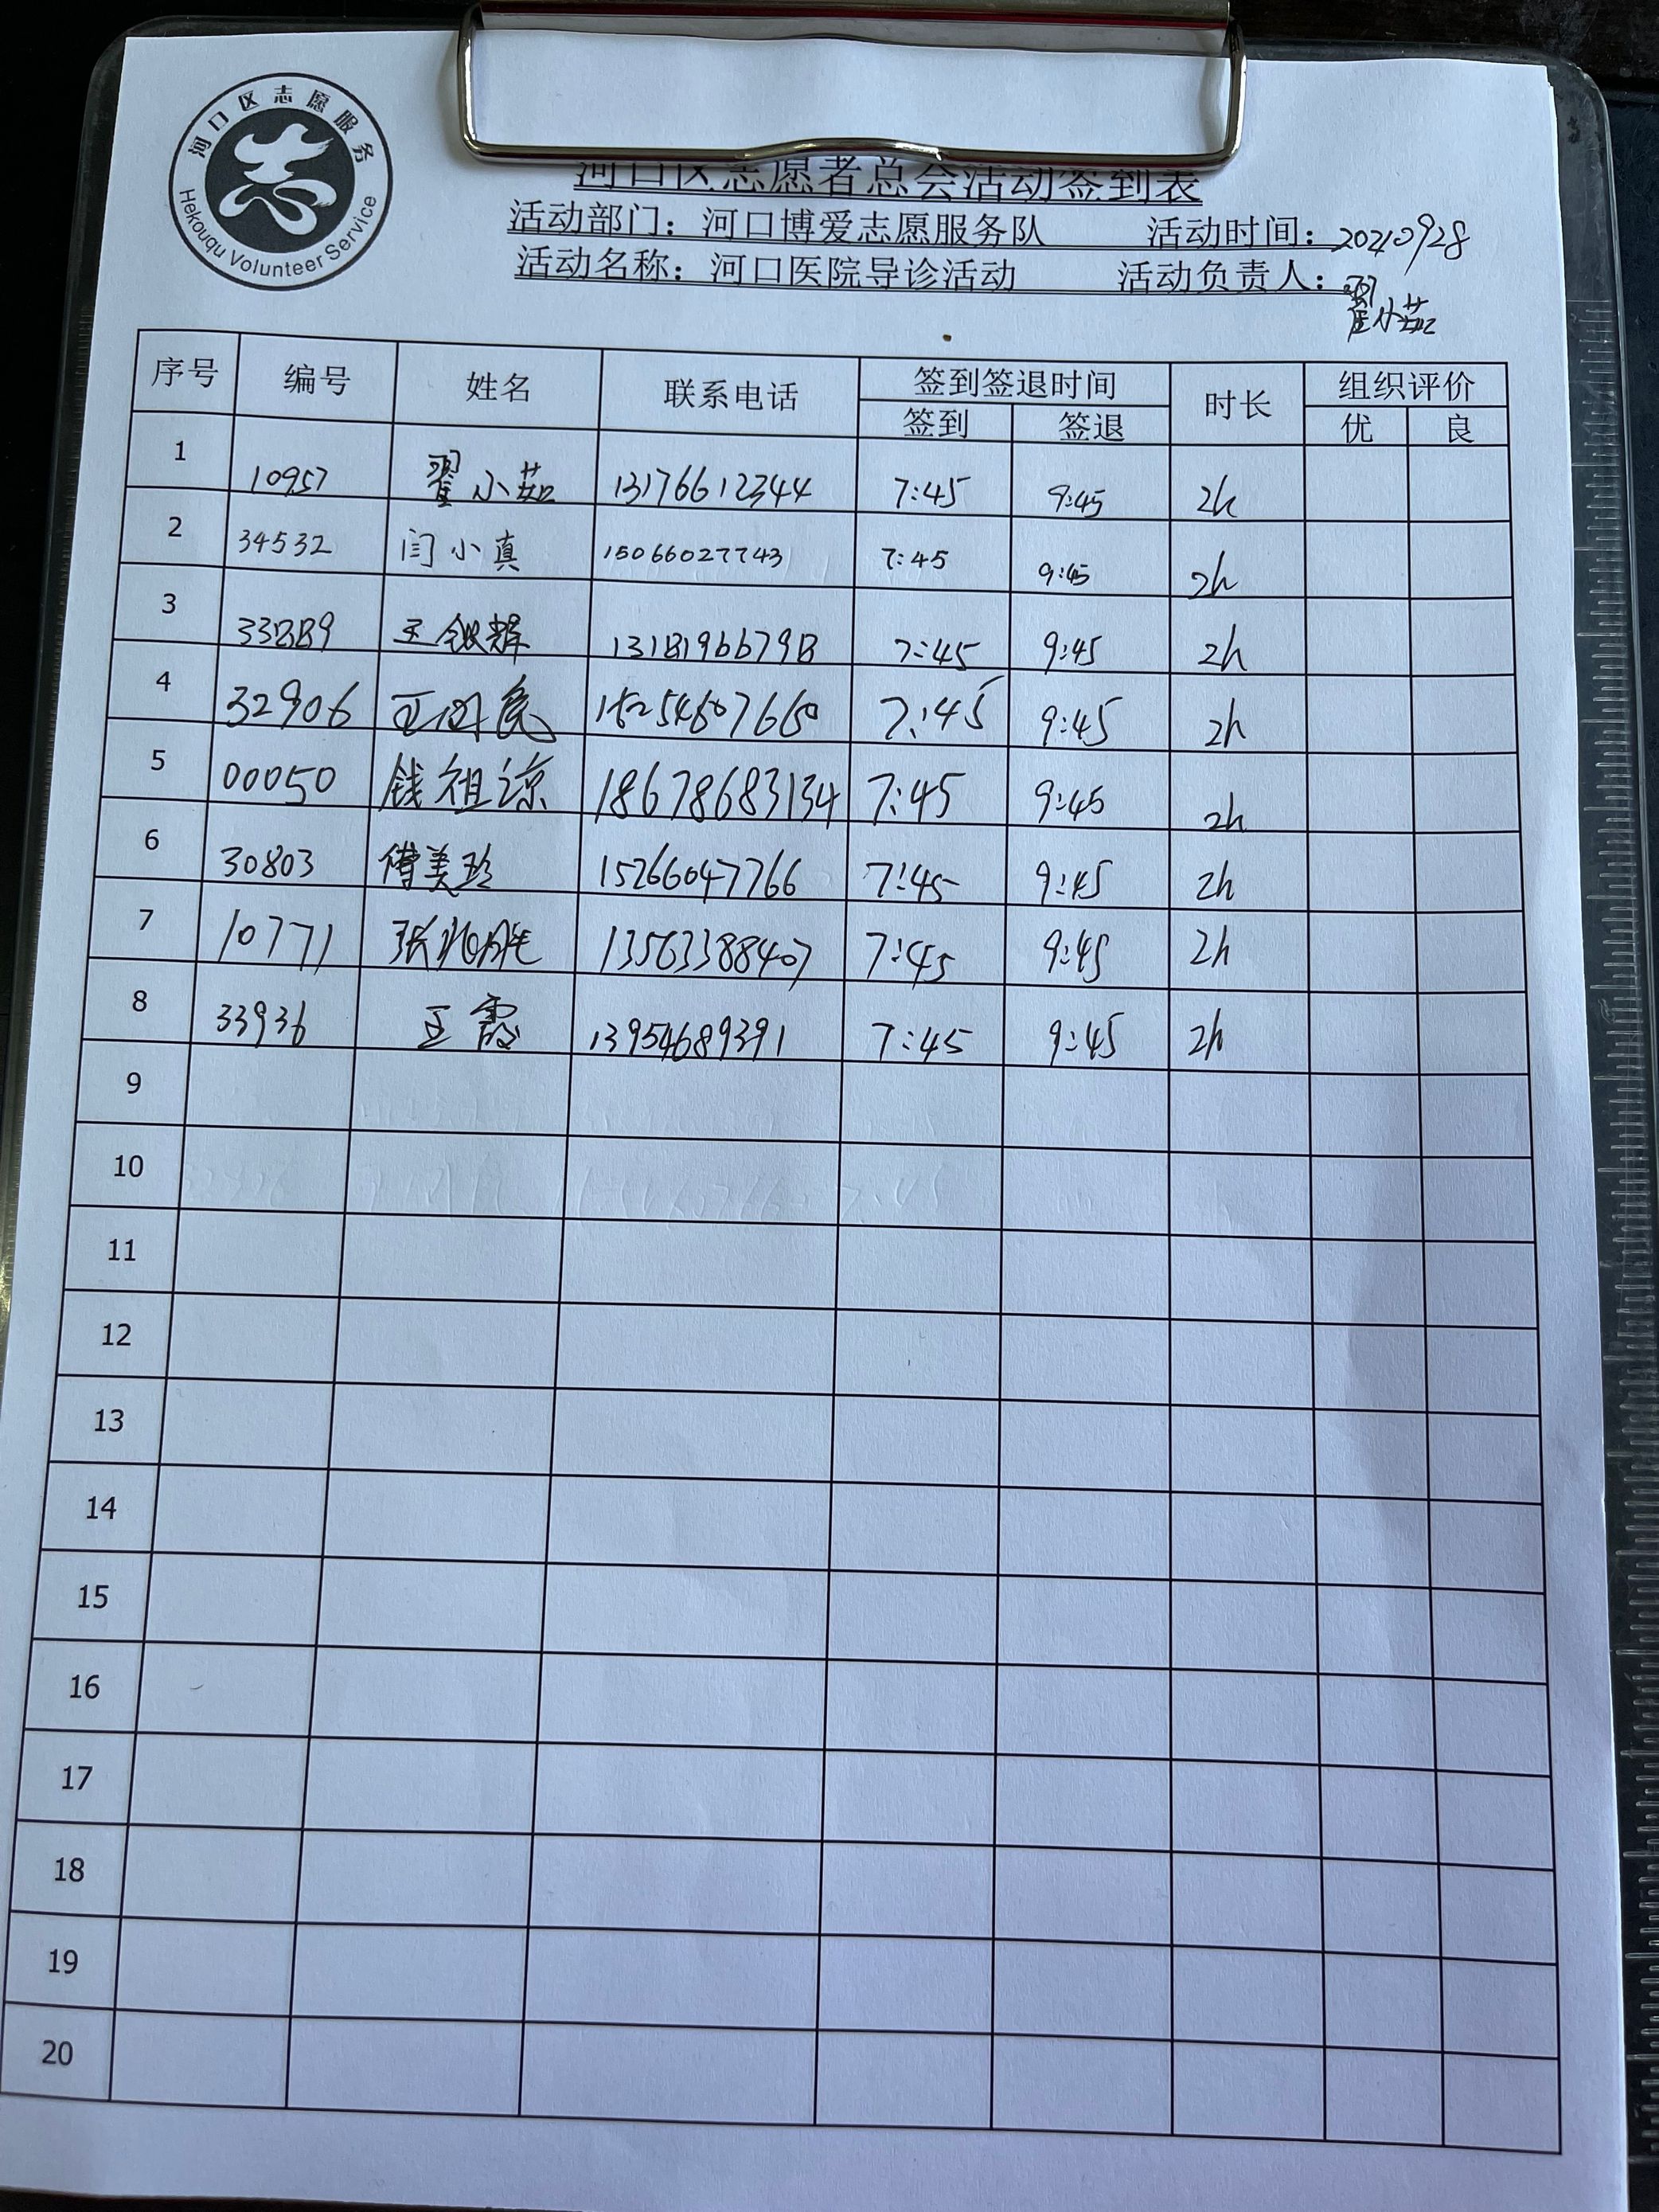 河口区志愿服务
Hekouqu Volunteer Service
河口区志愿者总会活动签到表
活动部门：河口博爱志愿服务队 活动时间：20210928
活动名称：河口医院导诊活动 活动负责人：翟小茹
序号 编号 姓名 联系电话 签到签退时间 时长 组织评价
签到 签退 优 良
1 10957 翟小茹 13176612344 7:45 9:45 2h
2 34532 闫小真 15066027743 7:45 9:45 2h
3 33889 王银辉 13181966798 7:45 9:45 2h
4 32906 7:45 9:45 2h
5 00050 钱祖谅 18678683134 7:45 9:45 2h
6 30803 傅美珍 15266047766 7:45 9:45 2h
7 10771 张兆胜 13563388407 7:45 9:45 2h
8 33936 王霞 13954689391 7:45 9:45 2h
9
10
11
12
13
14
15
16
17
18
19
20